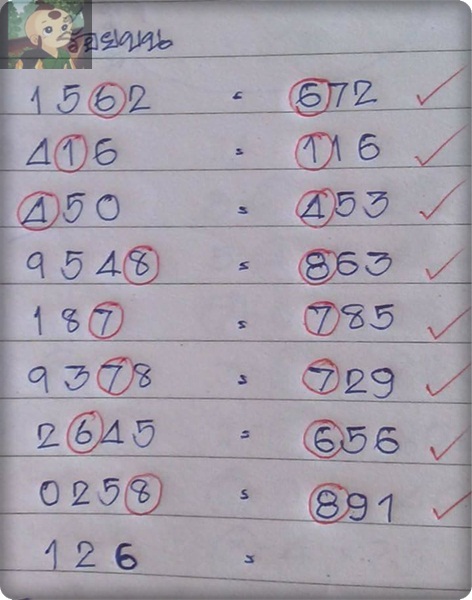 ร้อยบน
1562 = 672
416 = 116
450 = 453
9548 = 863
187 = 785
9378 = 729
2645 = 656
0258 = 891
126 =